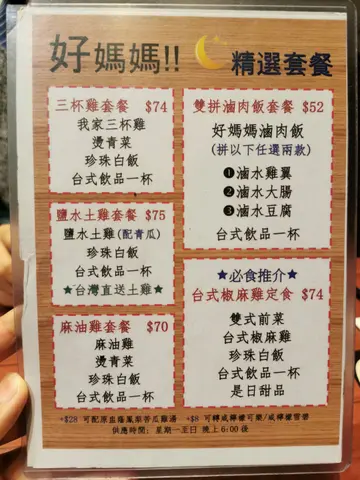 好媽媽!!
精選套餐
三杯雞套餐 $74
我家三杯雞
燙青菜
珍珠白飯
台式飲品一杯
鹽水土雞套餐 $75
鹽水土雞(配青瓜)
珍珠白飯
台式飲品一杯
★台灣直送土雞★
麻油雞套餐 $70
麻油雞
燙青菜
珍珠白飯
台式飲品一杯
雙拼滷肉飯套餐 $52
好媽媽滷肉飯
(拼以下任選兩款)
❶滷水雞翼
❷滷水大腸
❸滷水豆腐
台式飲品一杯
★必食推介★
台式椒麻雞定食 $74
雙式前菜
台式椒麻雞
珍珠白飯
台式飲品一杯
是日甜品
+$28 可配原盅蔭鳳梨苦瓜雞湯
+$8 可轉咸檸檬可樂/咸檸檬雪碧
供應時間: 星期一至日 晚上6:00後